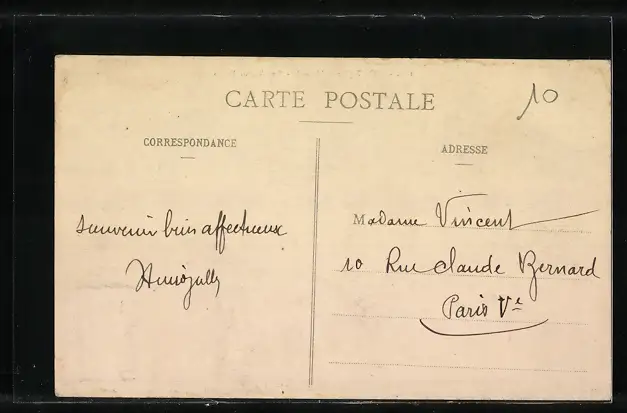 CARTE POSTALE
10
CORRESPONDANCE
ADRESSE
souvenir bien affectueux
Madame Vincent
10 Rue Claude Bernard
Paris Ve